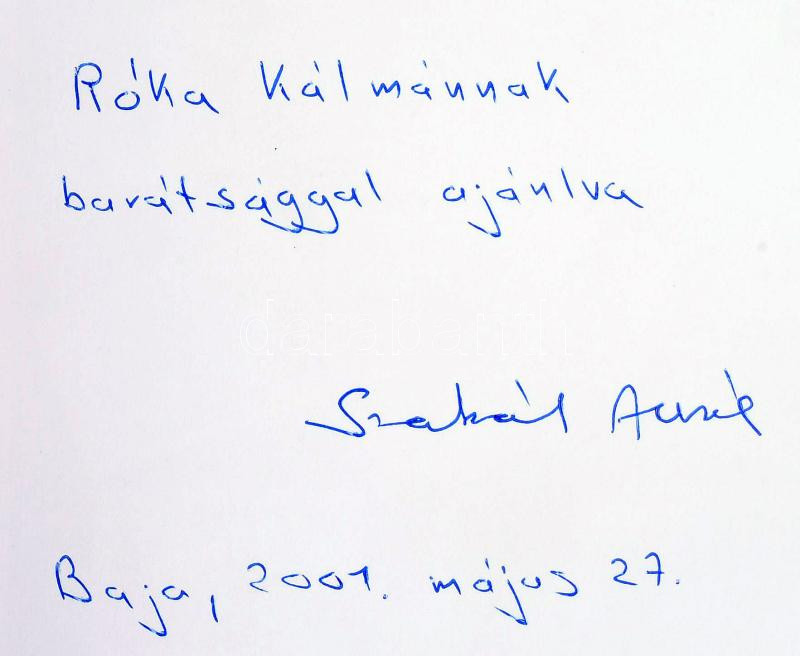 Róka Kálmánnak
barátsággal ajánlva
darabanth
Szakál Aurél
Baja, 2001. május 27.